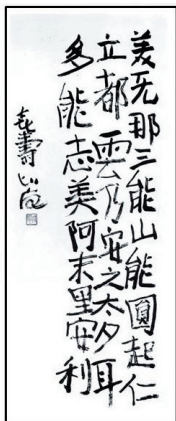 美无那三能山能圓起仁
立都雲乃安之太夕耳
多能志美阿末里安利
喜壽